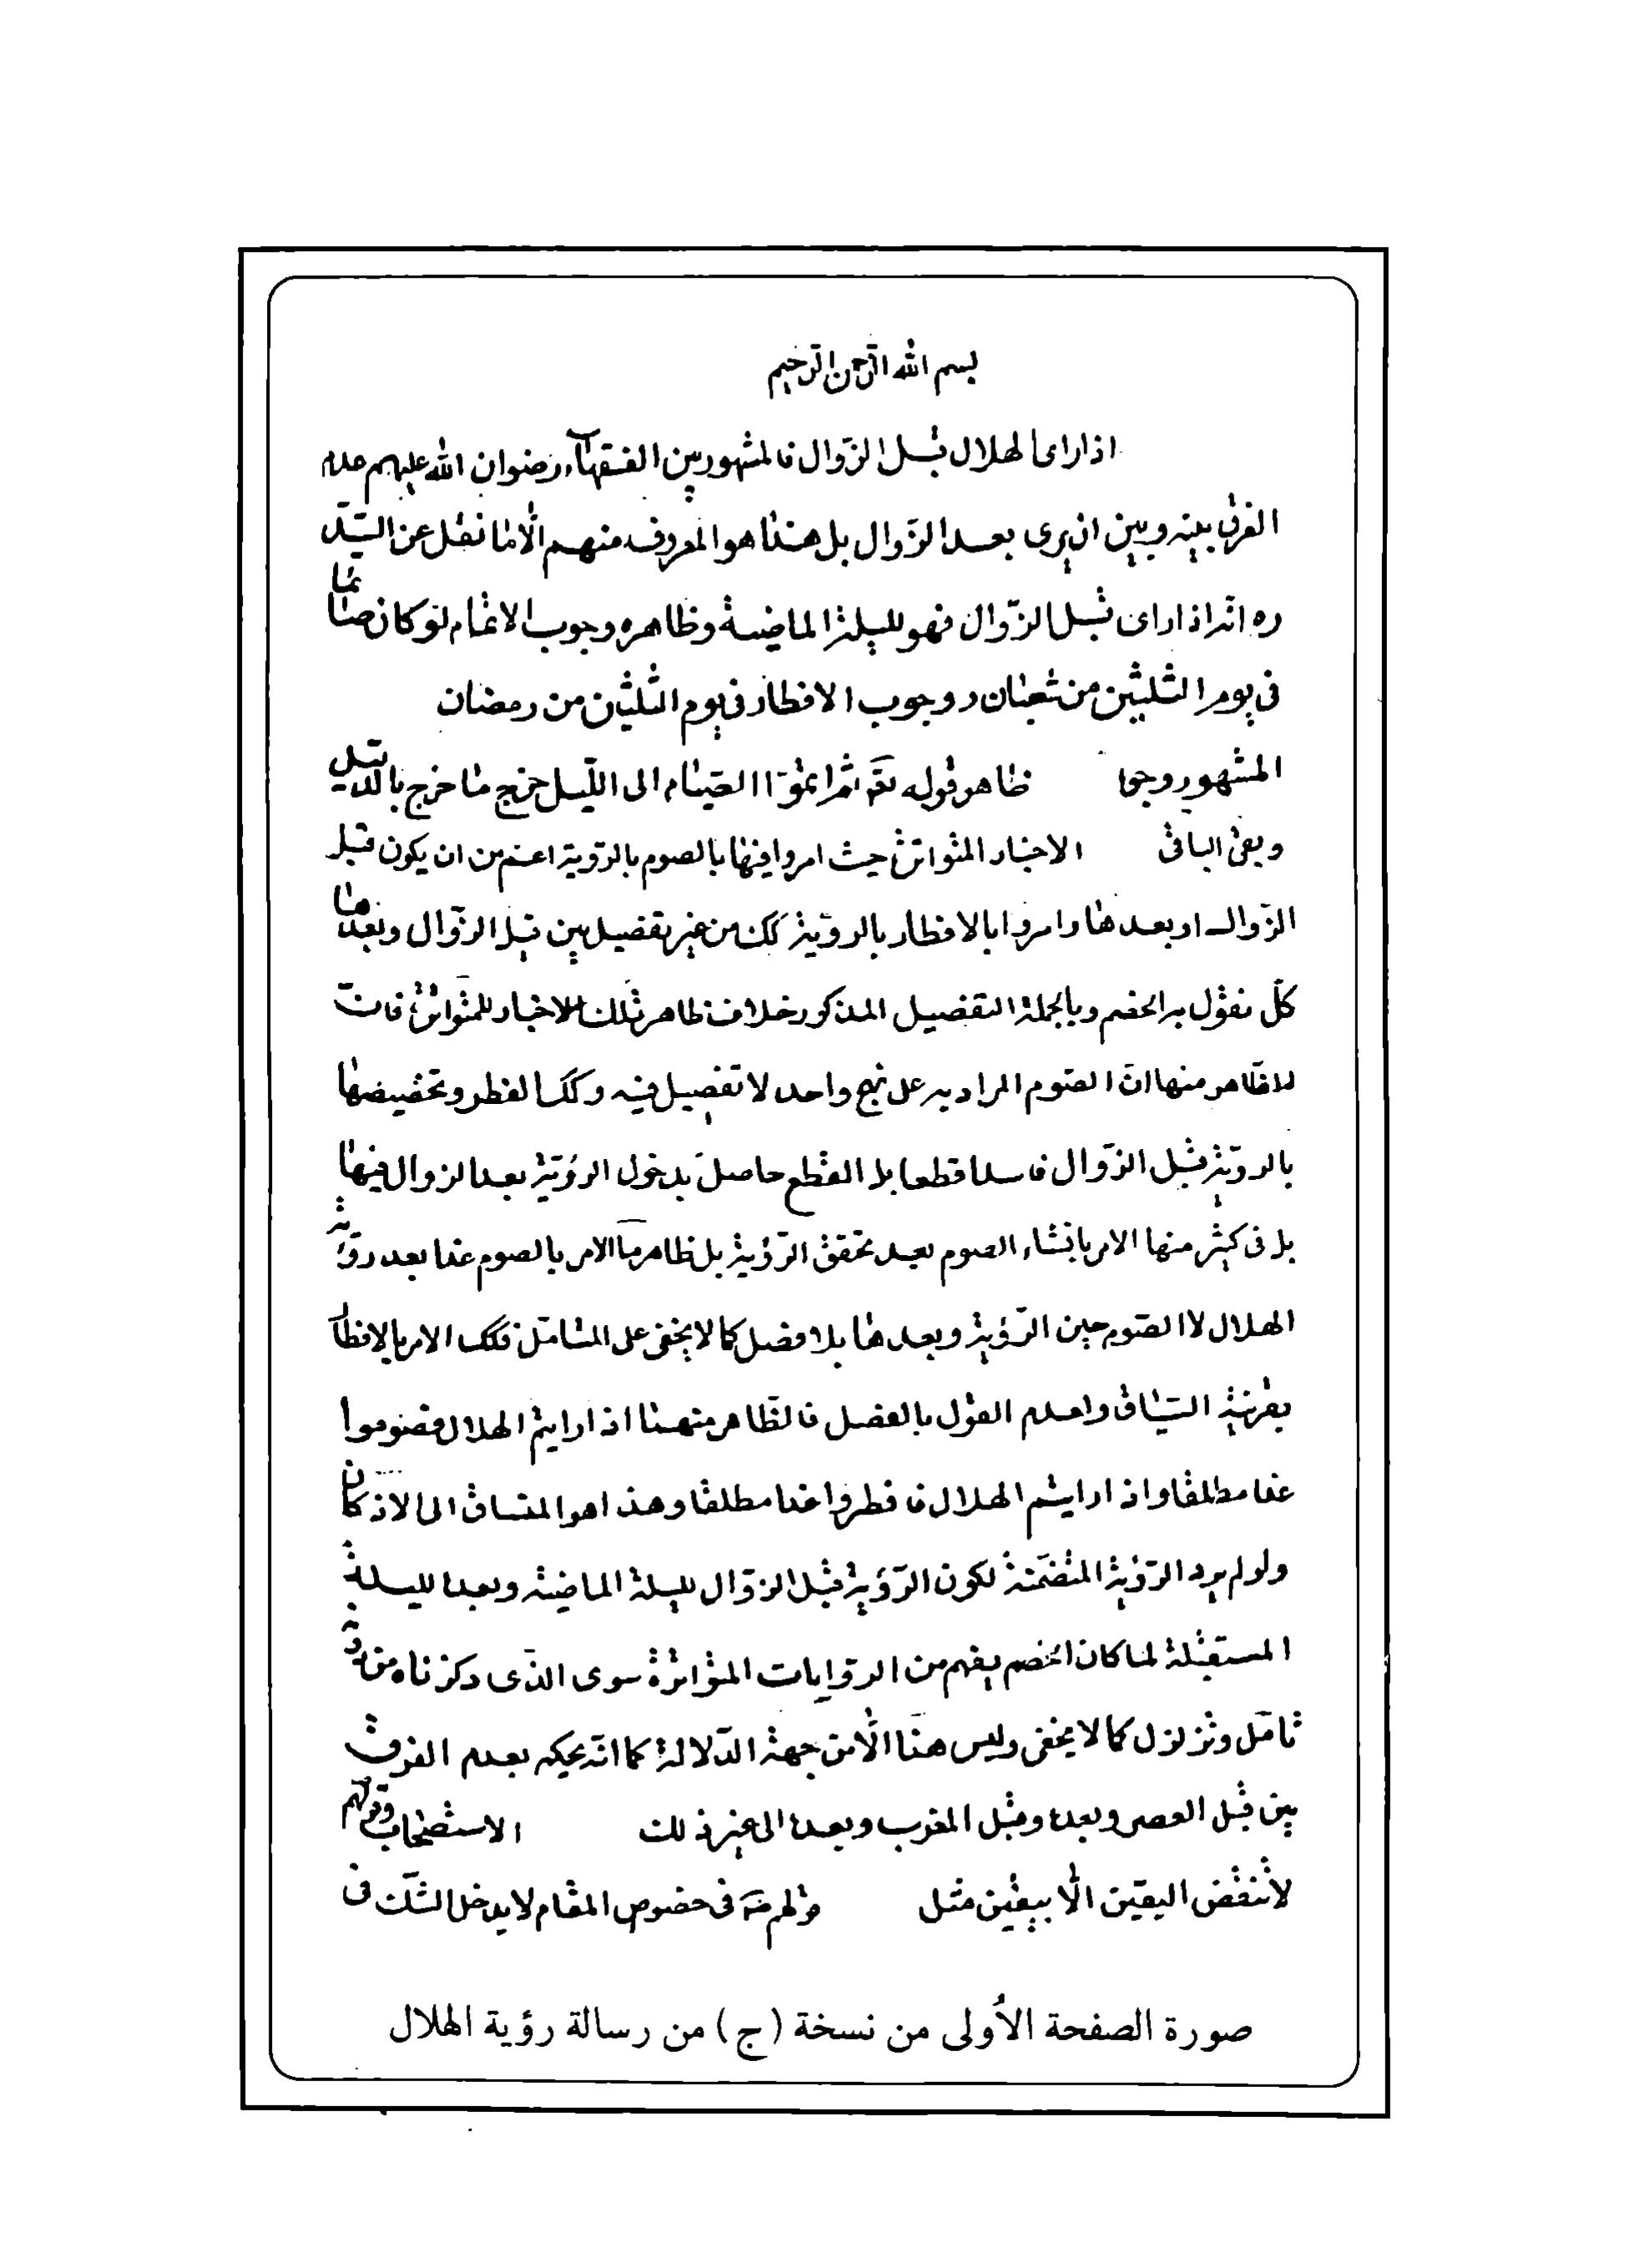 بسم الله الرحمن الرحيم
اذا رأى الهلال قبل الزوال فالمشهور بين الفقهاء رضوان الله عليهم عدم
الفرق بينه وبين ان يرى بعد الزوال بل هذا هو المعروف منهم الا ما نقل عن السيد
ره انه اذا راى قبل الزوال فهو لليلة الماضية وظاهره وجوب الاتمام لو كان صائما
فى يوم الثلثين من شعبان ووجوب الافطار فى يوم الثلثين من رمضان
المشهور وجوه ظاهر قوله تعم ثم اتموا الصيام الى الليل خرج ما خرج بالدليل
وبقى الباقى الاخبار المتواترة حيث امروا فيها بالصوم بالرؤية اعم من ان يكون قبل
الزوال او بعدها وامروا بالافطار بالرؤية كك من غير تفصيل بين قبل الزوال وبعدها
كل نقول به الخصم وبالجملة التفصيل المذكور خلاف ظاهر تلك الاخبار المتواترة فان
الظاهر منها ان الصوم المراد به على نهج واحد لا تفصيل فيه وكك الفطر وتخصيصها
بالرؤية قبل الزوال فاسد قطعا بل القطع حاصل بدخول الرؤية بعد الزوال فيها
بل فى كثير منها الامر بانشاء الصوم بعد تحقق الرؤية بل ظاهرها الامر بالصوم غدا بعد رؤية
الهلال لا الصوم حين الرؤية وبعدها بلا فصل كما لا يخفى على المتامل فكك الامر بالافطار
بقرينة السياق وعدم القول بالفصل فالظاهر منهما اذا رايتم الهلال فصوموا
غدا مطلقا واذا رايتم الهلال فافطروا غدا مطلقا وهذا هو المنساق الى الاذكان
ولو لم يرد الرؤية المتضمنة لكون الرؤية قبل الزوال لليلة الماضية وبعده لليلة
المستقبلة لما كان الخصم يفهم من الروايات المتواترة سوى الذى ذكرناه من دون
تامل وتزلزل كما لا يخفى وليس هذا الا من جهة الدلالة كما انه يحكم بعدم الفرق
بين قبل العصر وبعده وقبل المغرب وبعده الى غير ذلك الاستصحاب وقولهم
لا تنقض اليقين الا بيقين مثل وقولهم فى خصوص المقام لا يدخل الشك فى
صورة الصفحة الأولى من نسخة (ج) من رسالة رؤية الهلال